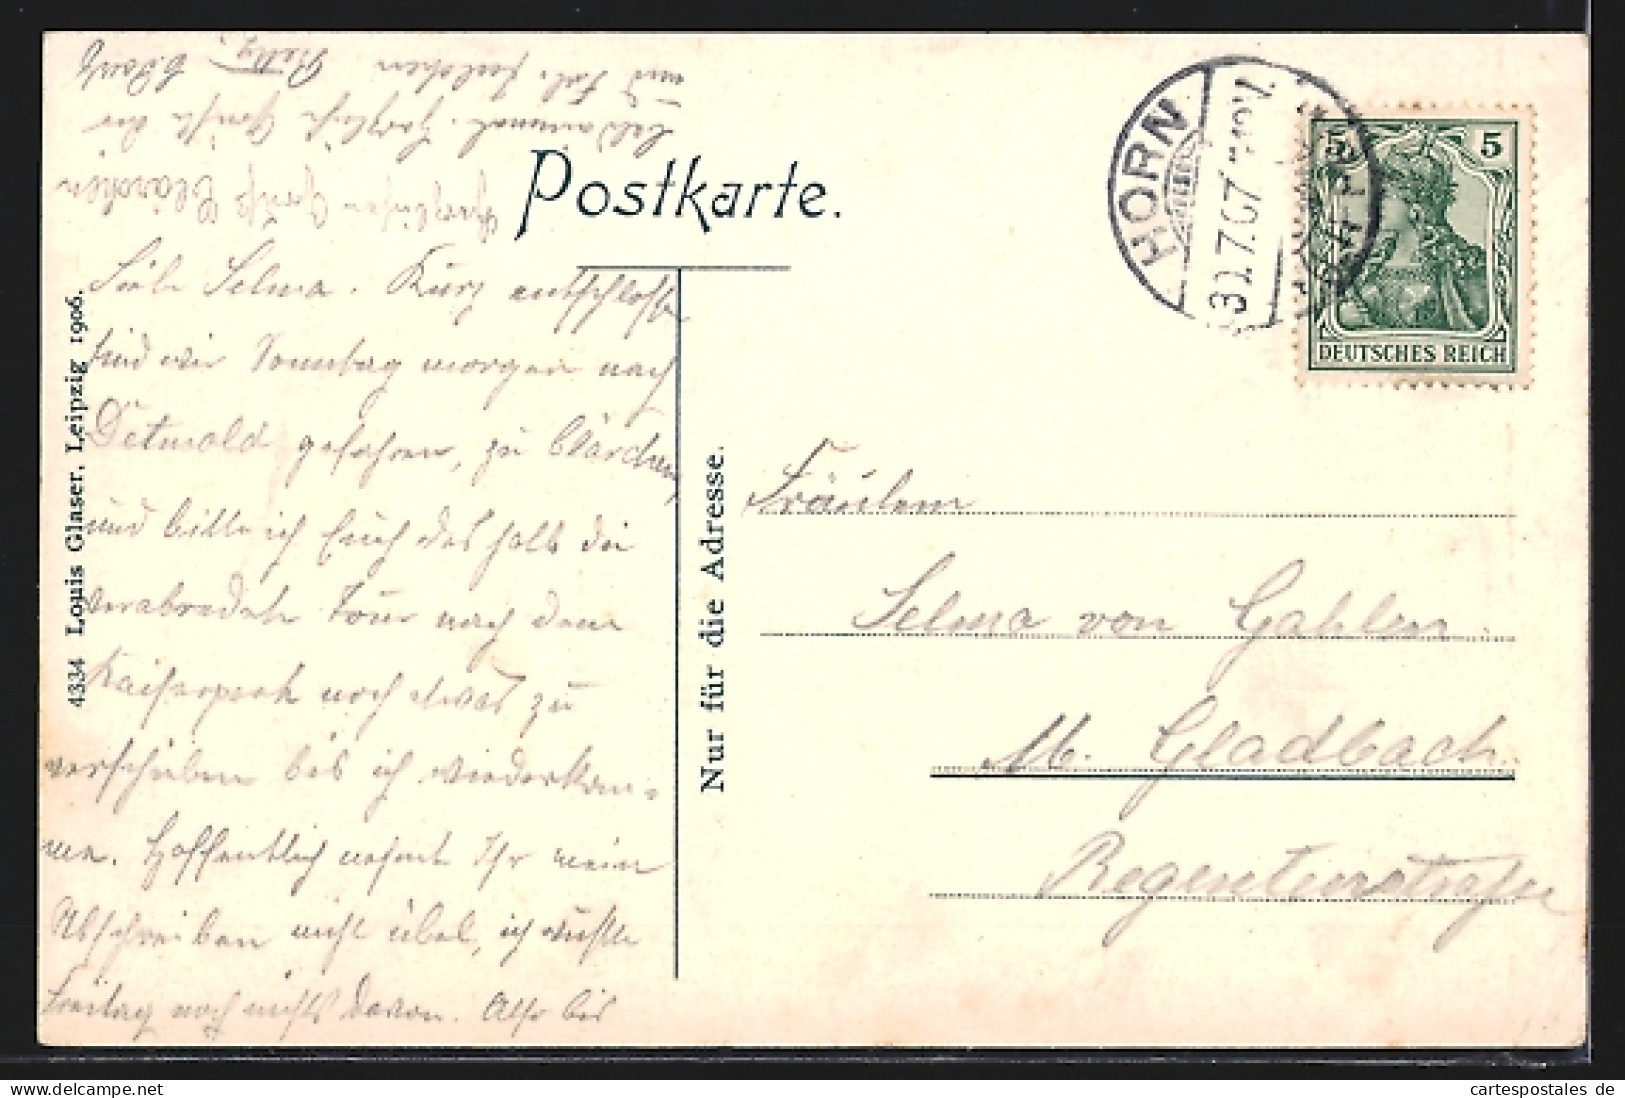 Postkarte.
Liebe Selma. Kurz entschlossen
sind wir Sonntag morgen nach
Detmold gefahren, zu Klärchen,
und bitte ich Euch deshalb die
verabredete Tour nach dem
Kaiserpark noch etwas zu
verschieben bis ich wiederkom-
me. Hoffentlich nehmt Ihr mein
Abschreiben nicht übel, ich wußte
Freitag noch nichts davon. Also bis
und Frl. Julchen
Herzlichen Gruß Clärchen
4334 Louis Glaser, Leipzig 1906.
Nur für die Adresse.
HORN
30.7.07
5 5
DEUTSCHES REICH
Fräulein
Selma von Gahlen
M. Gladbach
Regentenstraße
cartespostales de